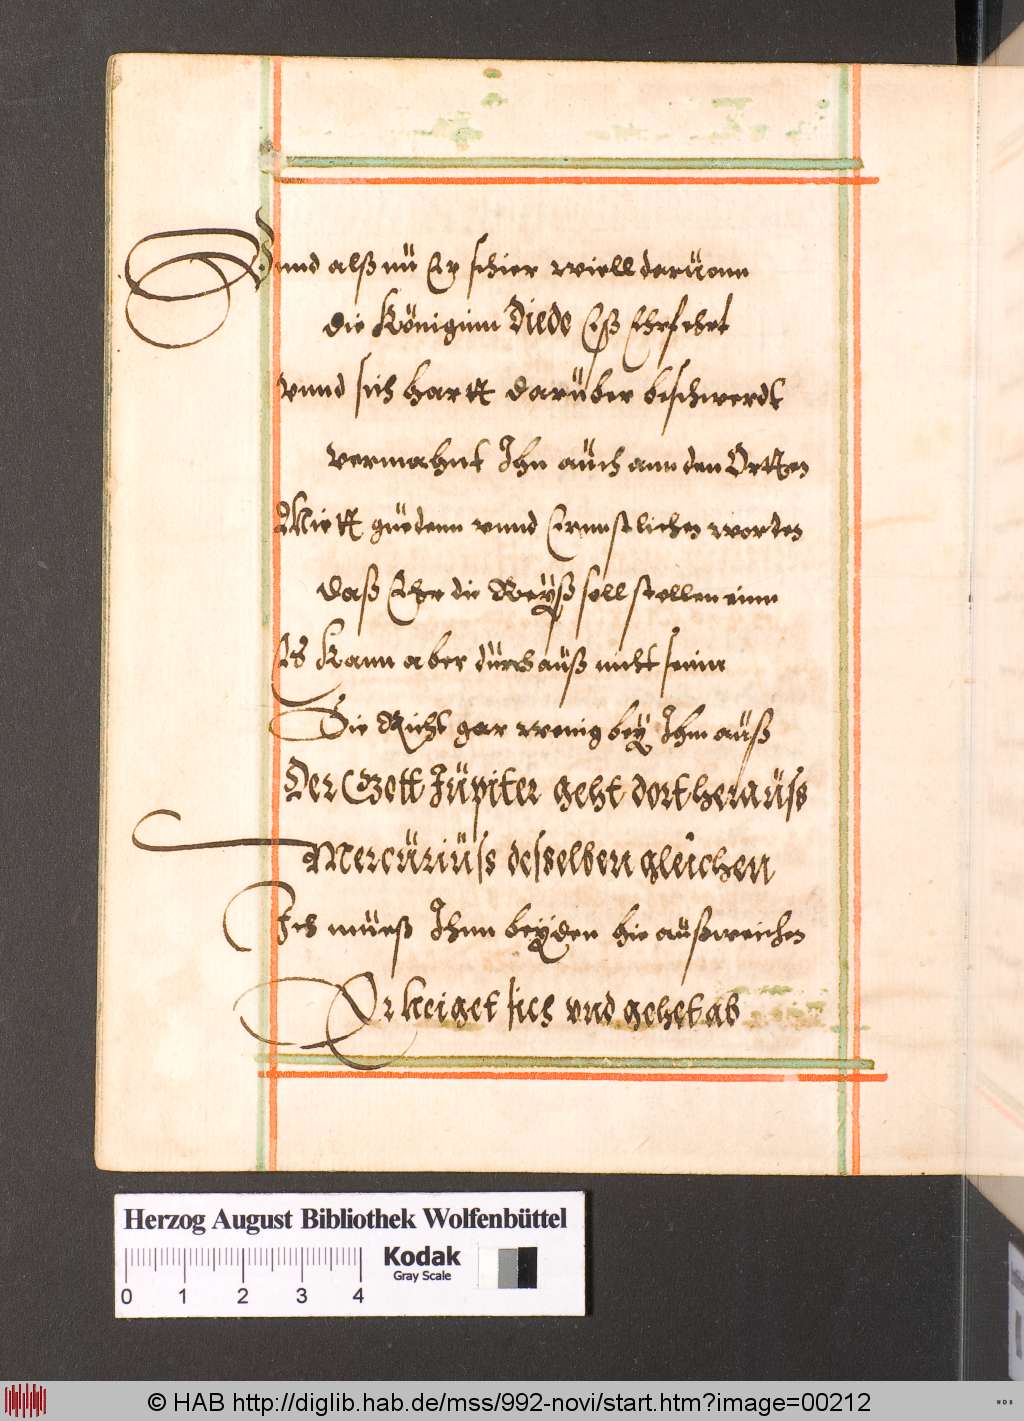 Vnnd alß nü Er schier wiell darüonn
die Königinn Diedo Eß Ehrfehrt
vnnd sich hartt darüber beschwerdt
vermahnt Ihn aüch ann den Ortten
Mitt güedenn vnnd Ernnstlichen worten
daß Ehr die Reÿß soll stellen einn
Es Kann aber dürchaüß nicht seinn
Sie Richt gar wenig beÿ Ihm aüß
Der Gott Jüpiter geht dort heraüss
Mercüriüss desselben gleichen
Ich müeß Ihnn beÿden hie außweichen
Er neiget sich vnd gehet ab
Herzog August Bibliothek Wolfenbüttel
Kodak
Gray Scale
0 1 2 3 4
© HAB http://diglib.hab.de/mss/992-novi/start.htm?image=00212